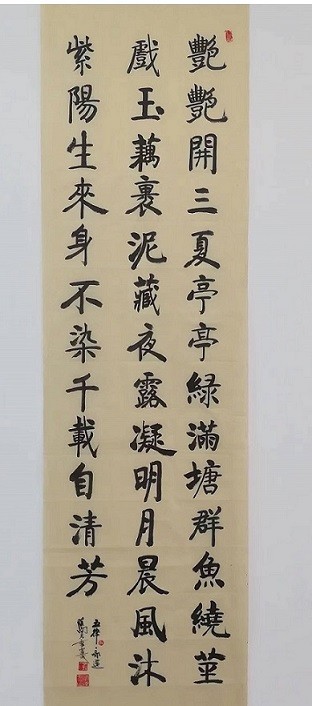 艷艷開三夏亭亭緑滿塘群魚繞莖
戲玉藕裹泥藏夜露凝明月晨風沐
紫陽生來身不染千載自清芳
五律